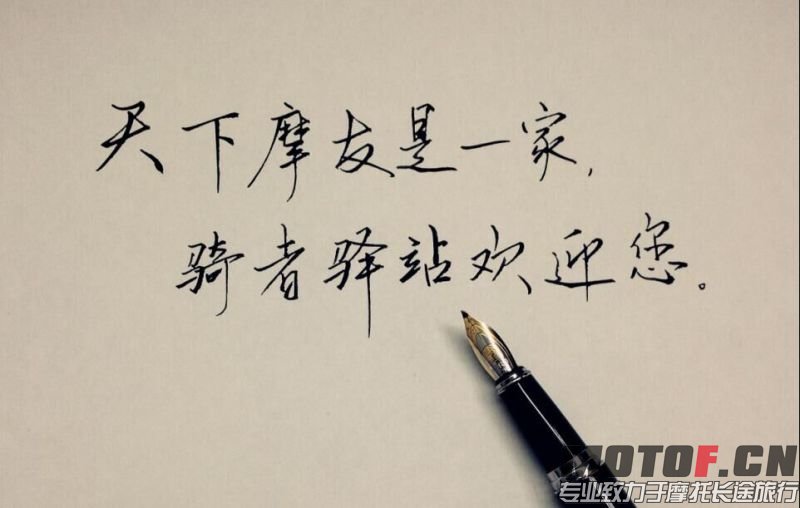 天下摩友是一家,
骑者驿站欢迎您。
MOTOF.CN
专业致力于摩托长途旅行